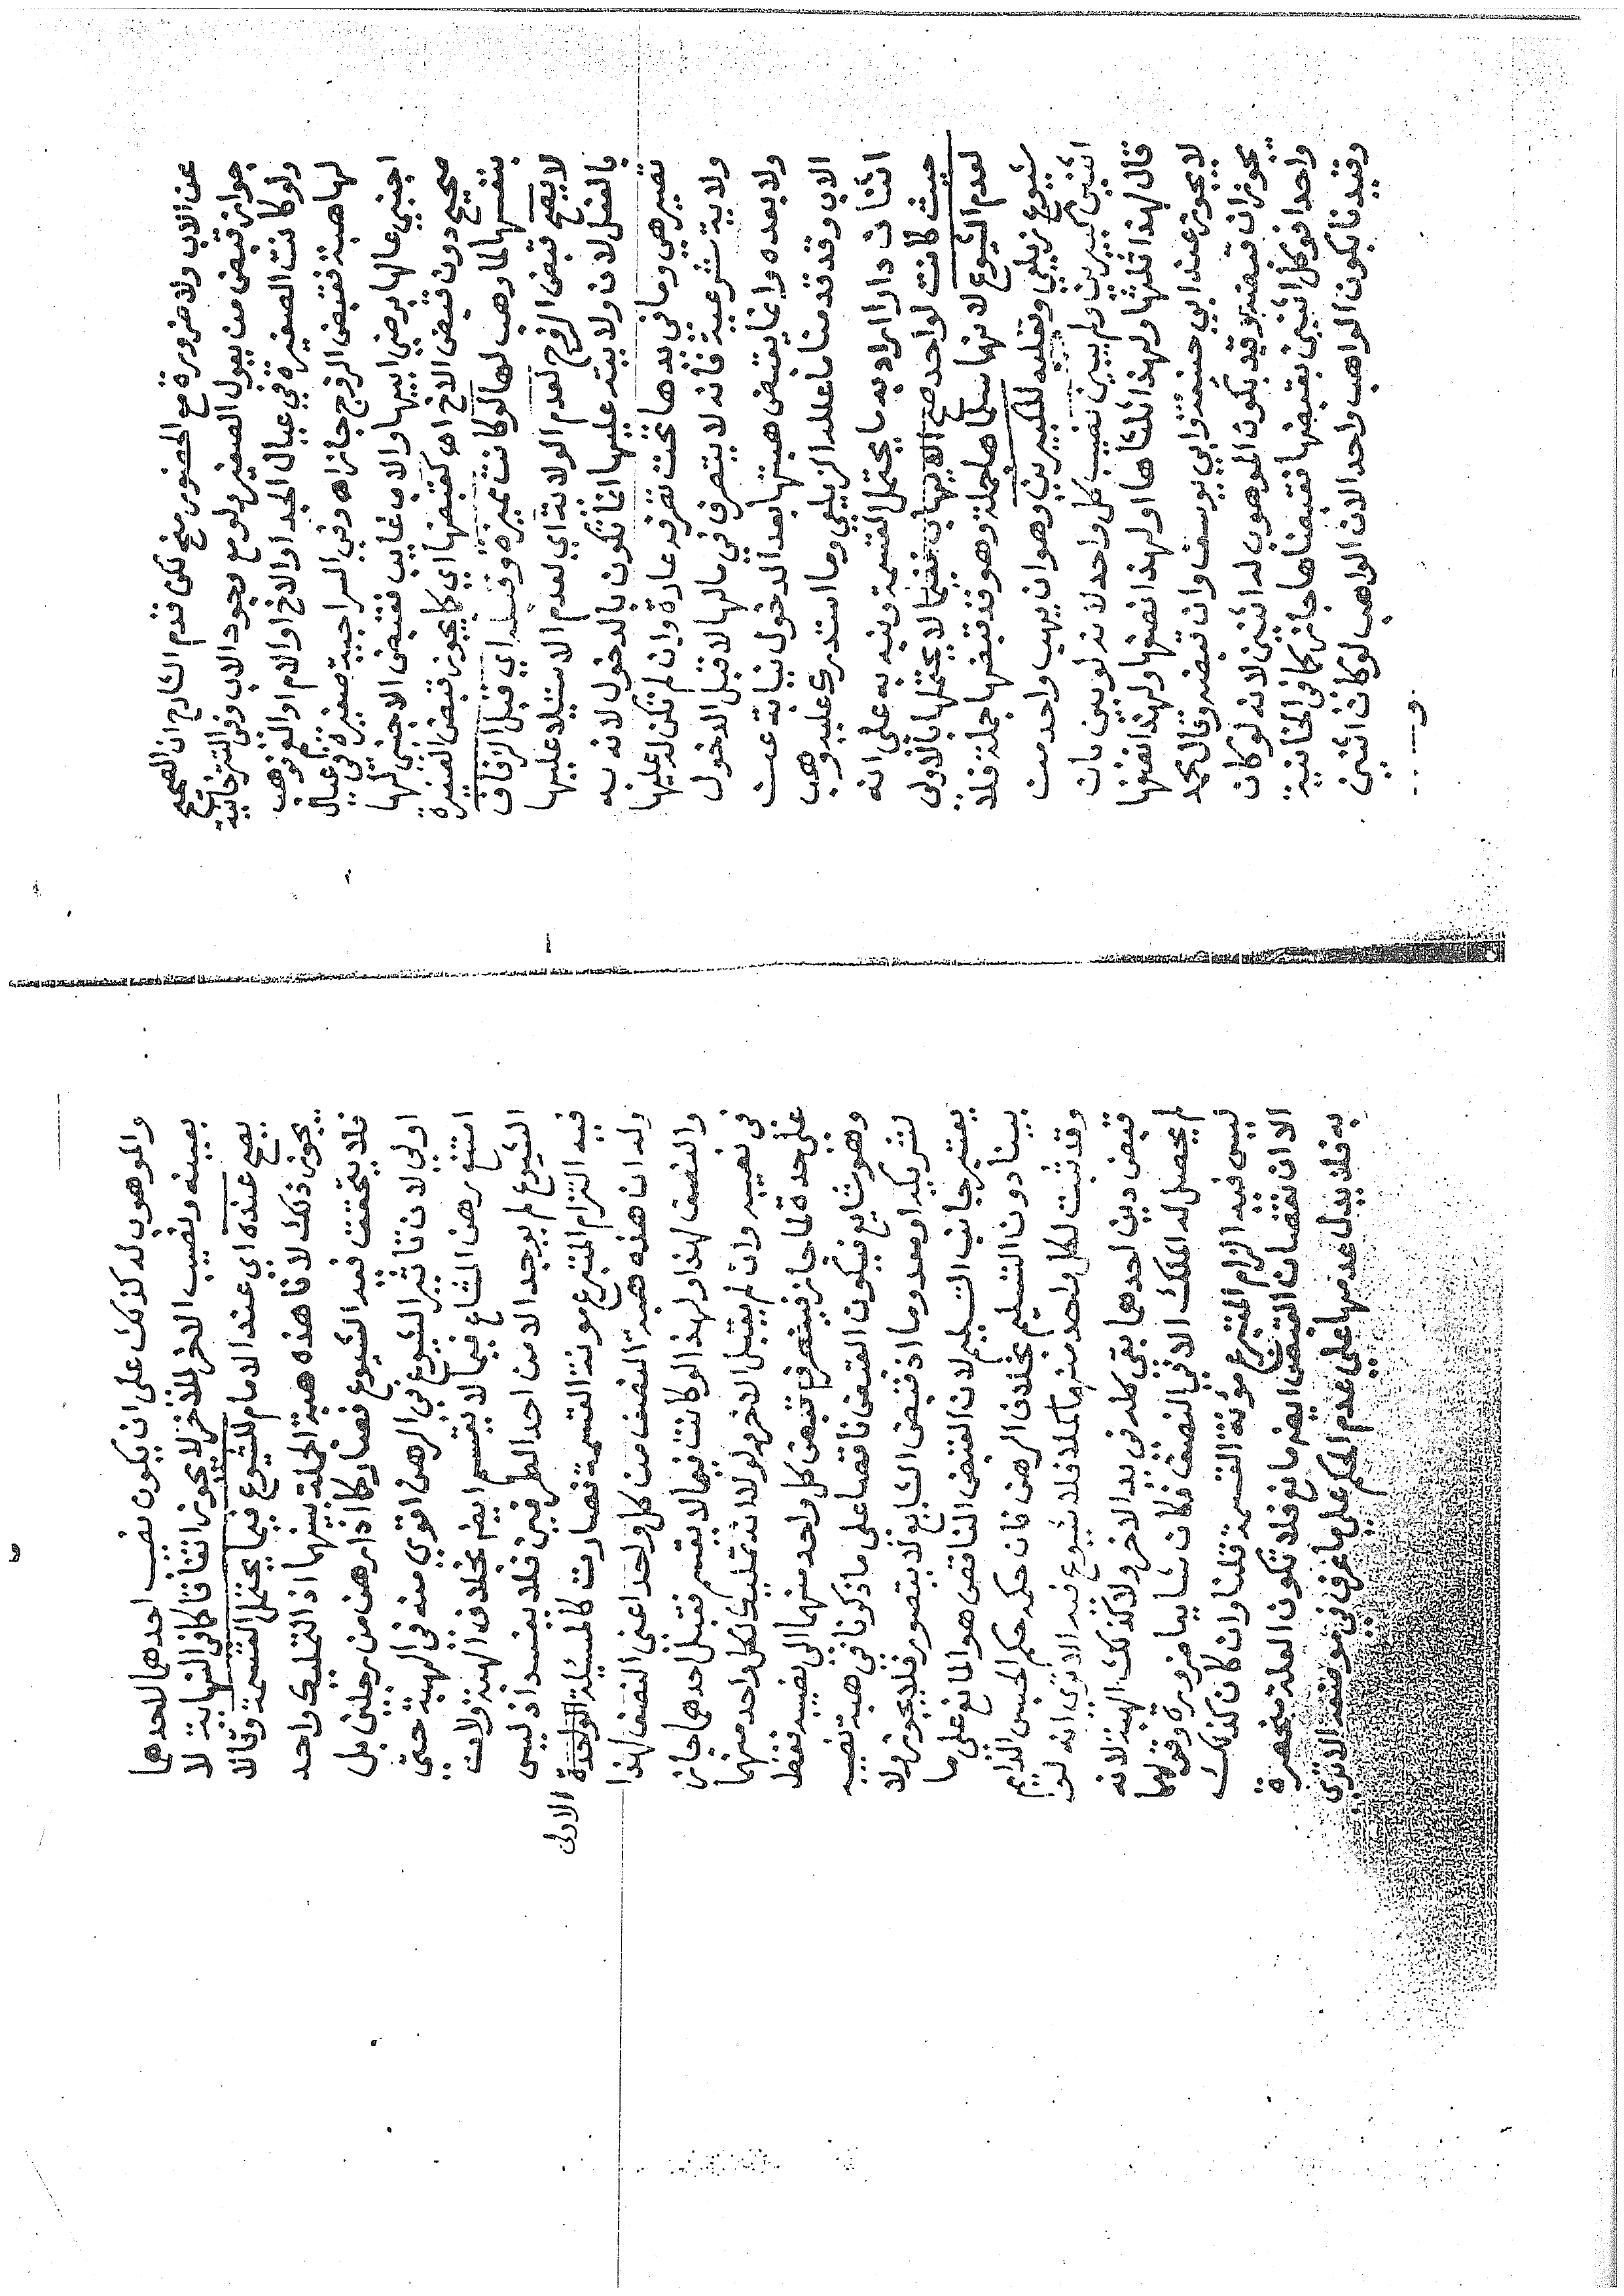 عن الاب ولا ضرورة مع الحضور منح لكن تقدم الشارح ان الصحيح
جواز قبض من يعول الصغير ولو مع وجود الاب وفي التترخانية
ولو كانت الصغيرة في عيال الجد او الاخ او الام او العم فوهب
لها هبة فقبض الزوج جاز اه وفي السراجية صغيرة في عيال
اجنبي عالها برضى ابيها والاب غايب فقبض الاجنبي لها
صحيح دون قبض الاخ اه كقبضها اي كما يجوز قبض الصغيرة
بنفسها لما وهب لها لو كانت مميزة وقبله اي قبل الزفاف
لا يصح قبض الزوج لعدم الولاية اي لعدم الاستيلاء عليها
بالفعل لان ولاية يد عليها انما تكون بالدخول لانه به
تصير هي وما في يدها تحت تصرفه عادة وان لم تكن له عليها
ولاية شرعية فانه لا يتصرف في مالها لا قبل الدخول
ولا بعده وانما يقبض هبتها بعد الدخول نيابة عن
الاب وقد قدمنا ما علله الزيلعي وما استدرك عليه وهب
اثنان دارا اراد به ما يحتمل القسمة ونبه به على انه
حيث كانت لواحد صح الايهاب فيما لا يحتملها بالاولى
لعدم الشيوع لانهما سلماها جملة وهو قد قبضها جملة فلا
شيوع زيلعي وبقلبه لكبيرين وهو ان يهب واحد من
اثنين كبيرين ولم يبين نصيب كل واحد لانه لو بين بان
قال لهذا ثلثها ولهذا ثلثاها او لهذا نصفها ولهذا نصفها
لا يجوز عند ابي حنيفة وابي يوسف وان قبضه وقال محمد
يجوز ان قبضه وقيد بكون الموهوب له اثنين لانه لو كان
واحدا فوكل اثنين بقبضها فقبضاها جاز كما في الخانية
وقيدنا بكون الواهب واحدا لان الواهب لو كان اثنين
والموهوب له كذلك على ان يكون نصيب احدهما لاحدهما
بعينه ونصيب الاخر للاخر لا يجوز اتفاقا كما في النهاية لا
يصح عنده اي عند الامام للشيوع فيما يحتمل القسمة وقالا
يجوز ذلك لان هذه هبة الجملة بينهما اذ التمليك واحد
فلا يتحقق فيه الشيوع فصار كما اذا رهن من رجلين بل
اولى لان تاثير الشيوع في الرهن اقوى منه في الهبة حتى
امتنع رهن المشاع فيما لا يقسم ايضا بخلاف الهبة ولان
الشيوع لم يوجد الا من احد الطرفين فلا يفسد اذ ليس
فيه التزام المتبرع مونة القسمة فصارت كالمسئلة الواحدة الاولى
وله ان هذه هبة النصف من كل واحد اعني النصف لهذا
والنصف لهذا ولهذا لو كانت فيما لا يقسم فقبل احدهما جاز
في نصيبه وان لم يقبل الاخر ولولا انه تمليك لكل واحد منهما
على حدة لما جاز فيتصرف قبض كل واحد منهما الى نصيبه فقط
وهو شايع فيكون القبض ناقصا على ما ذكرنا في هبة نصيب
لشريكه او معدوما اذ قبض الشايع لا يتصور فلا يجوز ولا
يعتبر جانب التسليم لان القبض الناقص هو المانع على ما
بينا دون التسليم بخلاف الرهن فان حكمه حكم الحبس الدايم
وقد ثبت لكل واحد منهما كملا فلا شيوع فيه الا ترى انه لو
قبض دين احدهما بقي كله في يد الاخر ولا كذلك الهبة لانه
لم يحصل له الملك الا في النصف فكان شايعا ضرورة وقولهما
ليس فيه الزام المتبرع مؤنة القسمة قلنا وان كان كذلك
الا ان نقصان القبض ايضا مانع فلا تكون العلة منحصرة
به فلا يدل عدمها على عدم الحكم على ما عرف في موضعه الا ترى